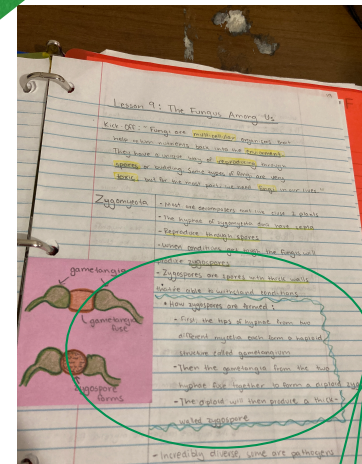 Lesson 9: The Fungus Among Us
Kick-Off: "Fungi are multi-cellular organisms that
help return nutrients back into the environment.
They have a unique way of reproducing through
spores or budding. Some types of fungi are very
toxic, but for the most part, we need fungi in our lives."
Zygomycota
- Most are decomposers that live close to plants
- The hyphae of zygomycota don't have septa
- Reproduce through spores
- When conditions get tough the fungus will
produce zygospores
- Zygospores are spores with thick walls
that're able to withstand conditions
• How zygospores are formed:
- First, the tips of hyphae from two
different mycelia each form a haploid
structure called gametangium
- Then the gametangia from the two
hyphae fuse together to form a diploid
- The diploid will then produce a thick-
walled zygospore
- Incredibly diverse, some are pathogens
gametangia
gametangia
fuse
zygospore
forms